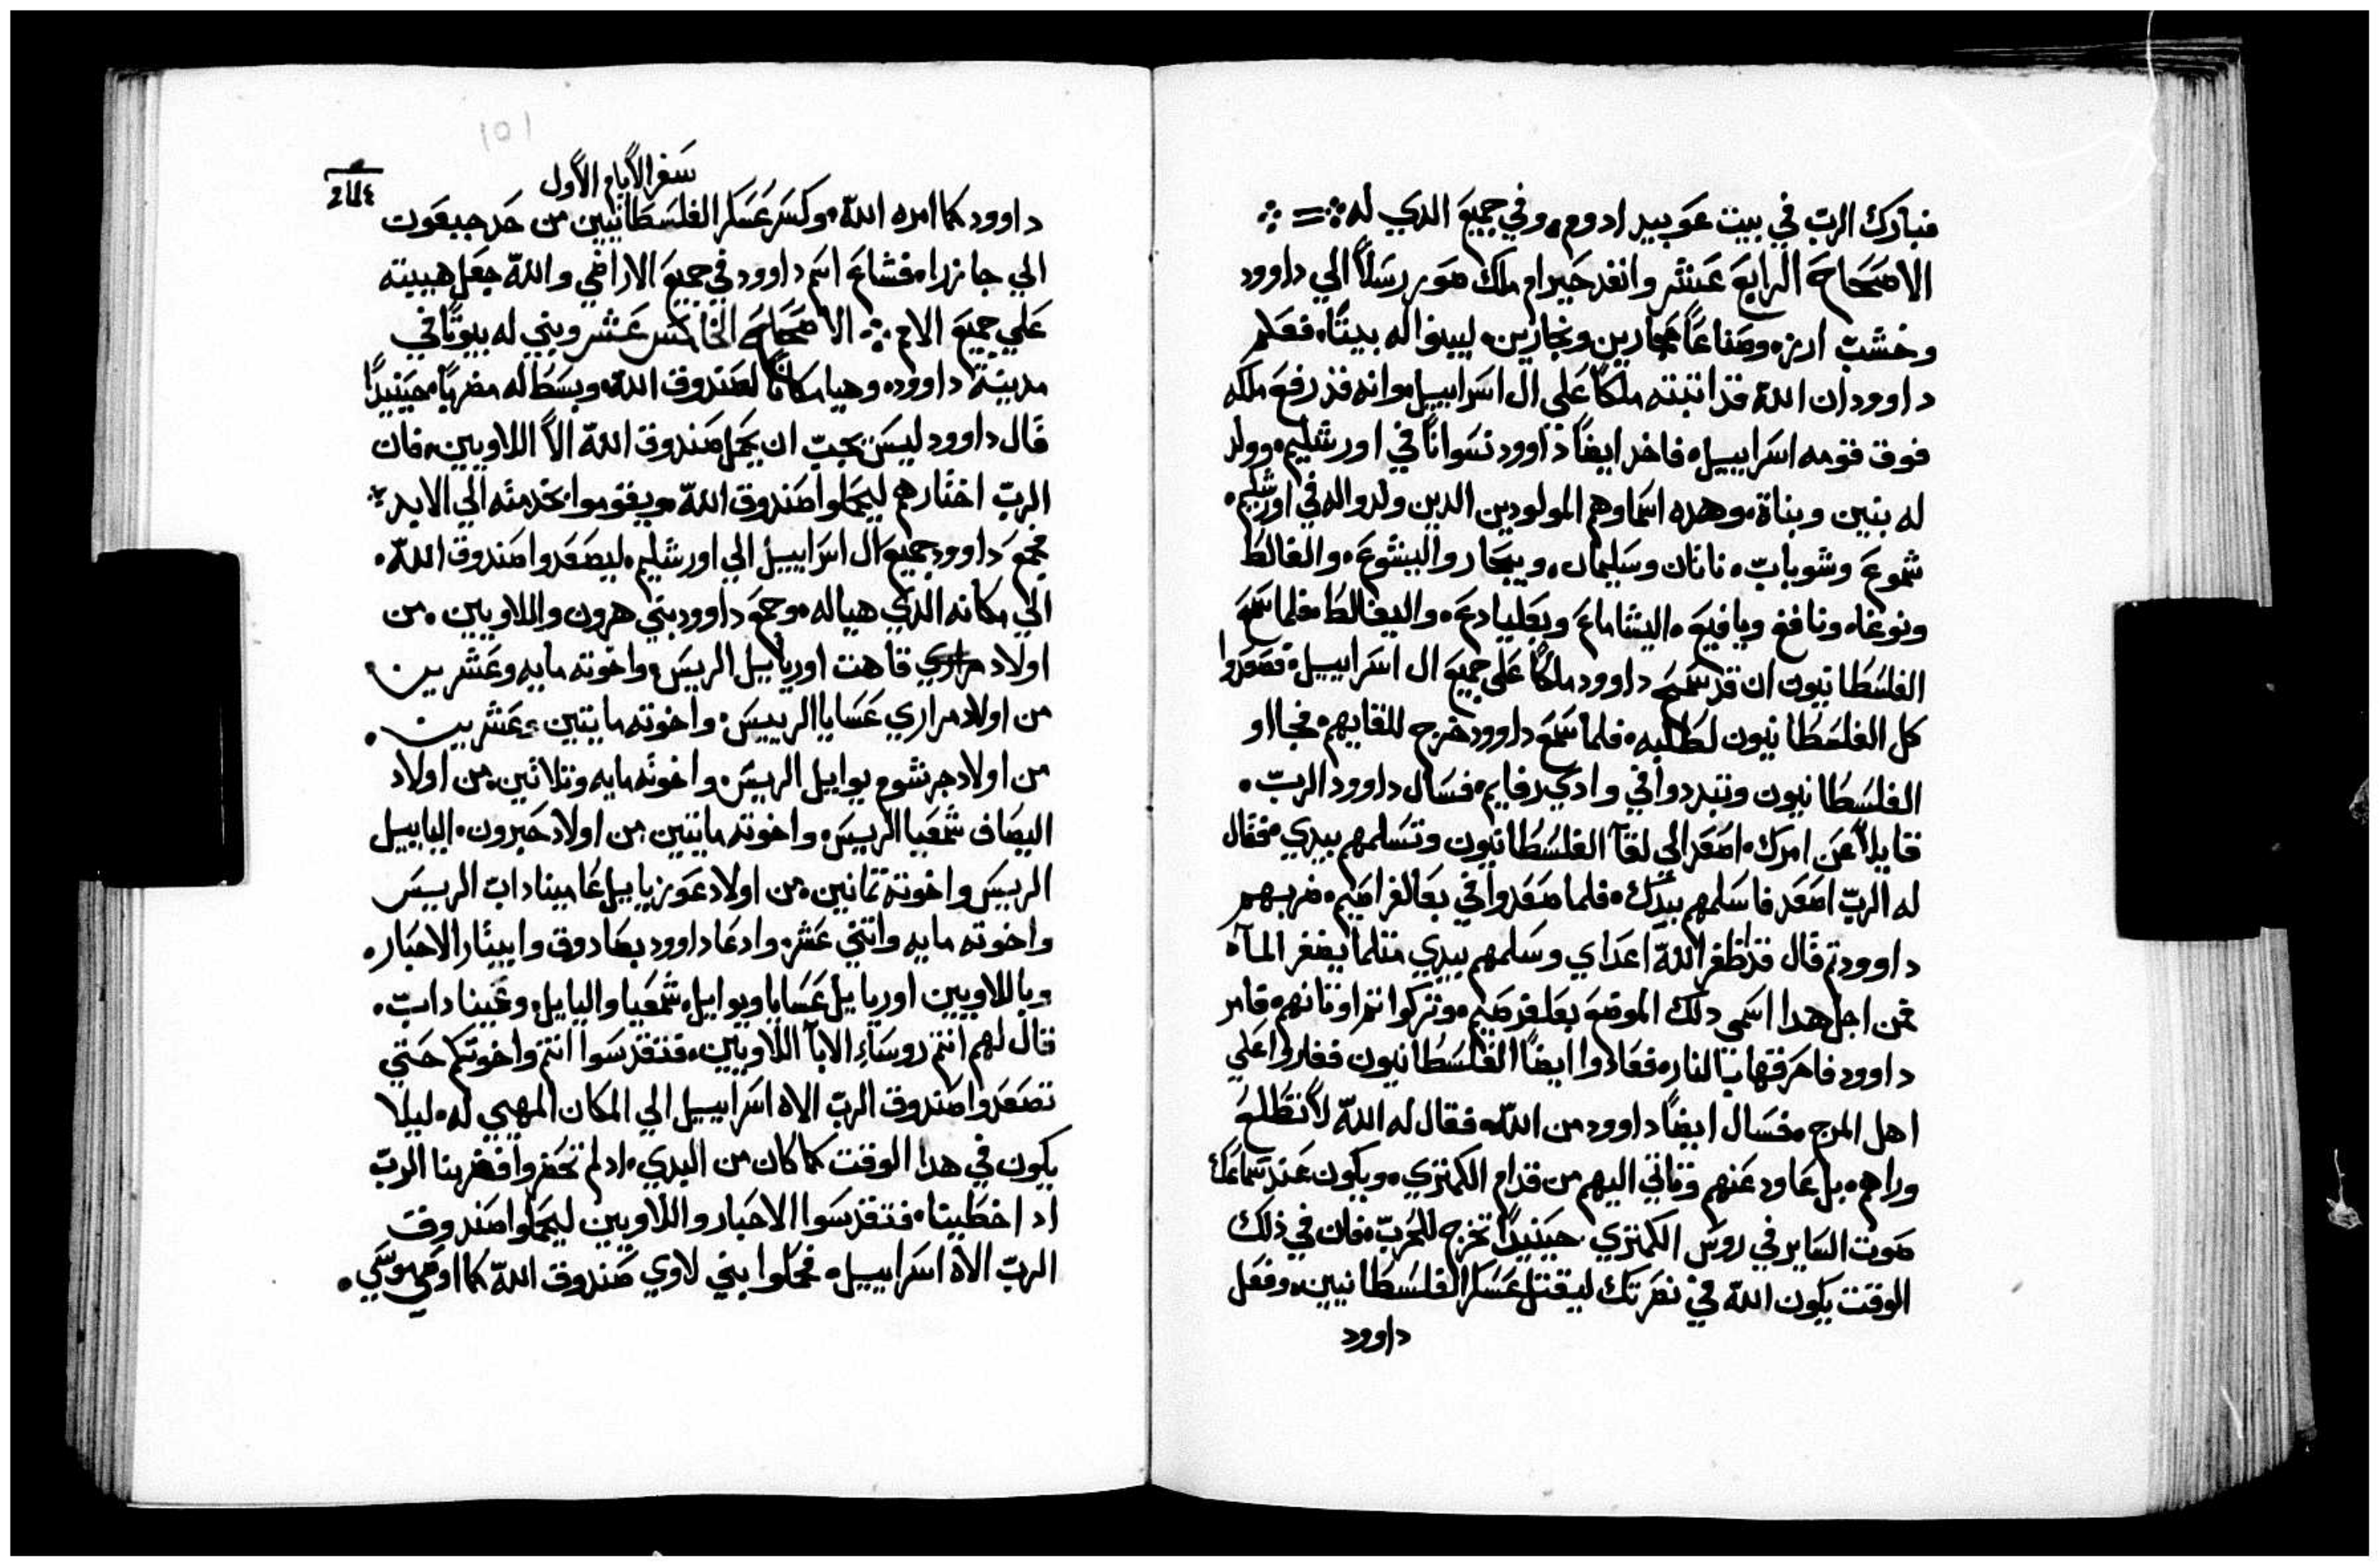 فبارك الرب في بيت عوبيد ادوم، وفي جميع الدي له
الاصحاح الرابع عشر وانفد حيرام ملك صور رسلاً الي داوود
وخشب ارز، وصناعاً حجارين ونجارين، ليبنوا له بيتاً، فعلم
داوود ان الله قد اتبته ملكاً علي ال اسراييل، وانه قد رفع ملكه
فوق قومه اسراييل، فاخد ايضاً داوود نسواناً في اورشليم، وولد
له بنين وبناة، وهده اسماوهم المولودين الدين ولدوا له في اورشليم،
شموع وشوباب، ناتان وسليمان، ويبحار واليشوع، والفالط
ونوغاه ونافغ ويافيع، اليشاماع وبعليادع، واليفالط، فلما سمع
الفلسطانيون ان قد مسح داوود ملكاً علي جميع ال اسراييل، فصعدوا
كل الفلسطانيون لطلبه، فلما سمع داوود خرج للقايهم، فجااو
الفلسطانيون وتبددوا في وادي رفايم، فسال داوود الرب،
قايلاً عن امرك، اصعد الي لقآ الفلسطانيون وتسلمهم بيدي، فقال
له الرب اصعد فاسلمهم بيدك، فلما صعدوا في بعالفراصيم، ضربهم
داوود تم قال قد ظفر الله اعداي وسلمهم بيدي متلما يفغر المآه
فمن اجل هدا اسمي دلك الموضع بعلفرصيم، وتركوا تم اوتانهم، فامر
داوود فاحرقها بالنار، فعادوا ايضاً الفلسطانيون فغاروا علي
اهل المرج، فسال ايضاً داوود من الله، فقال له الله لا تطلع
وراهم، بل عاود عنهم وتاتي اليهم من قدام الكمتري، ويكون عند سماعك
صوت الساير في روس الكمتري حينيداً تخرج للحرب، فان في ذلك
الوقت يكون الله في نصرتك ليقتل عسكر الفلسطانيين، وفعل
داوود
سفر الايام الاول
داوود كما امره الله، وكسر عسكر الفلسطانيين من حد جبعون
الي جازرا، فشاع اسم داوود في جميع الاراضي والله جعل هيبته
علي جميع الامم الاصحاح الخامس عشر وبني له بيوتاً في
مدينة داوود، وهيا مكاناً لصندوق الله، وبسط له مضرباً، حينيداً
قال داوود ليس يجب ان يحمل صندوق الله الا اللاويين، فان
الرب اختارهم ليحملوا صندوق الله، ويقوموا بخدمته الي الابد
فجمع داوود جميع ال اسراييل الي اورشليم، ليصعدوا صندوق الله،
الي مكانه الدي هياله، وجمع داوود بني هرون واللاويين، من
اولاد قاهت اورياييل الرييس، واخوته مايه وعشرين،
من اولاد مراري عسايا الرييس، واخوته مايتين وعشرين،
من اولاد جرشوم يواييل الرييس، واخوته مايه وتلاتين، من اولاد
اليصاف شمعيا الرييس، واخوته مايتين، من اولاد حبرون، الياييل
الرييس واخوته تمانين، من اولاد عوزياييل عاميناداب الرييس
واخوته مايه واتني عشر، وادعا داوود بصادوق وابيتار الاحبار،
وباللاويين اورياييل عسايا ويواييل، شمعيا والياييل، وعميناداب،
قال لهم انتم روساءِ الابآ اللاويين، فتقدسوا انتم واخوتكم حتي
تصعدوا صندوق الرب الاه اسراييل الي المكان المهيي له، ليلا
يكون في هدا الوقت كما كان من البدي، اد لم تحضروا فضربنا الرب
اد اخطينا، فتقدسوا الاحبار واللاويين ليحملوا صندوق
الرب الاه اسراييل، فحملوا بني لاوي صندوق الله كما اوصي موسي،